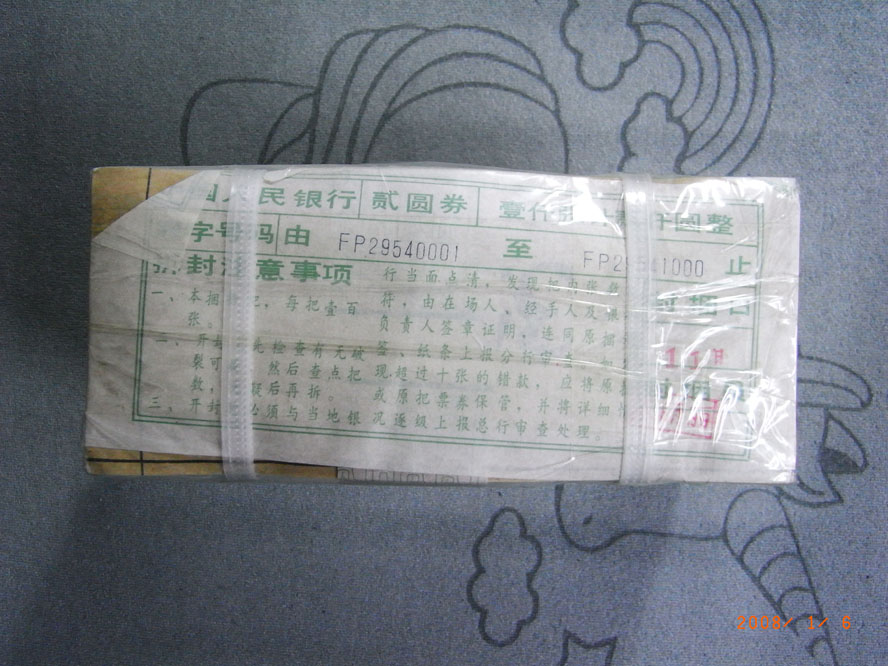 人民银行 贰圆券 壹仟张 仟圆整
字号码由 FP29540001 至 FP29541000 止
封注意事项
一、本捆拾把，每把壹百
张。
二、开封 先检查有无破
裂可 然后查点把
数， 疑后再拆。
三、开封 必须与当地银
行当面点清，发现把内张数
符，由在场人、经手人及
负责人签章证明，连同原捆
签、纸条上报分行审查。如
现超过十张的错款，应将原
或原把票券保管，并将详细情
况逐级上报总行审查处理。
2008/ 1/ 6